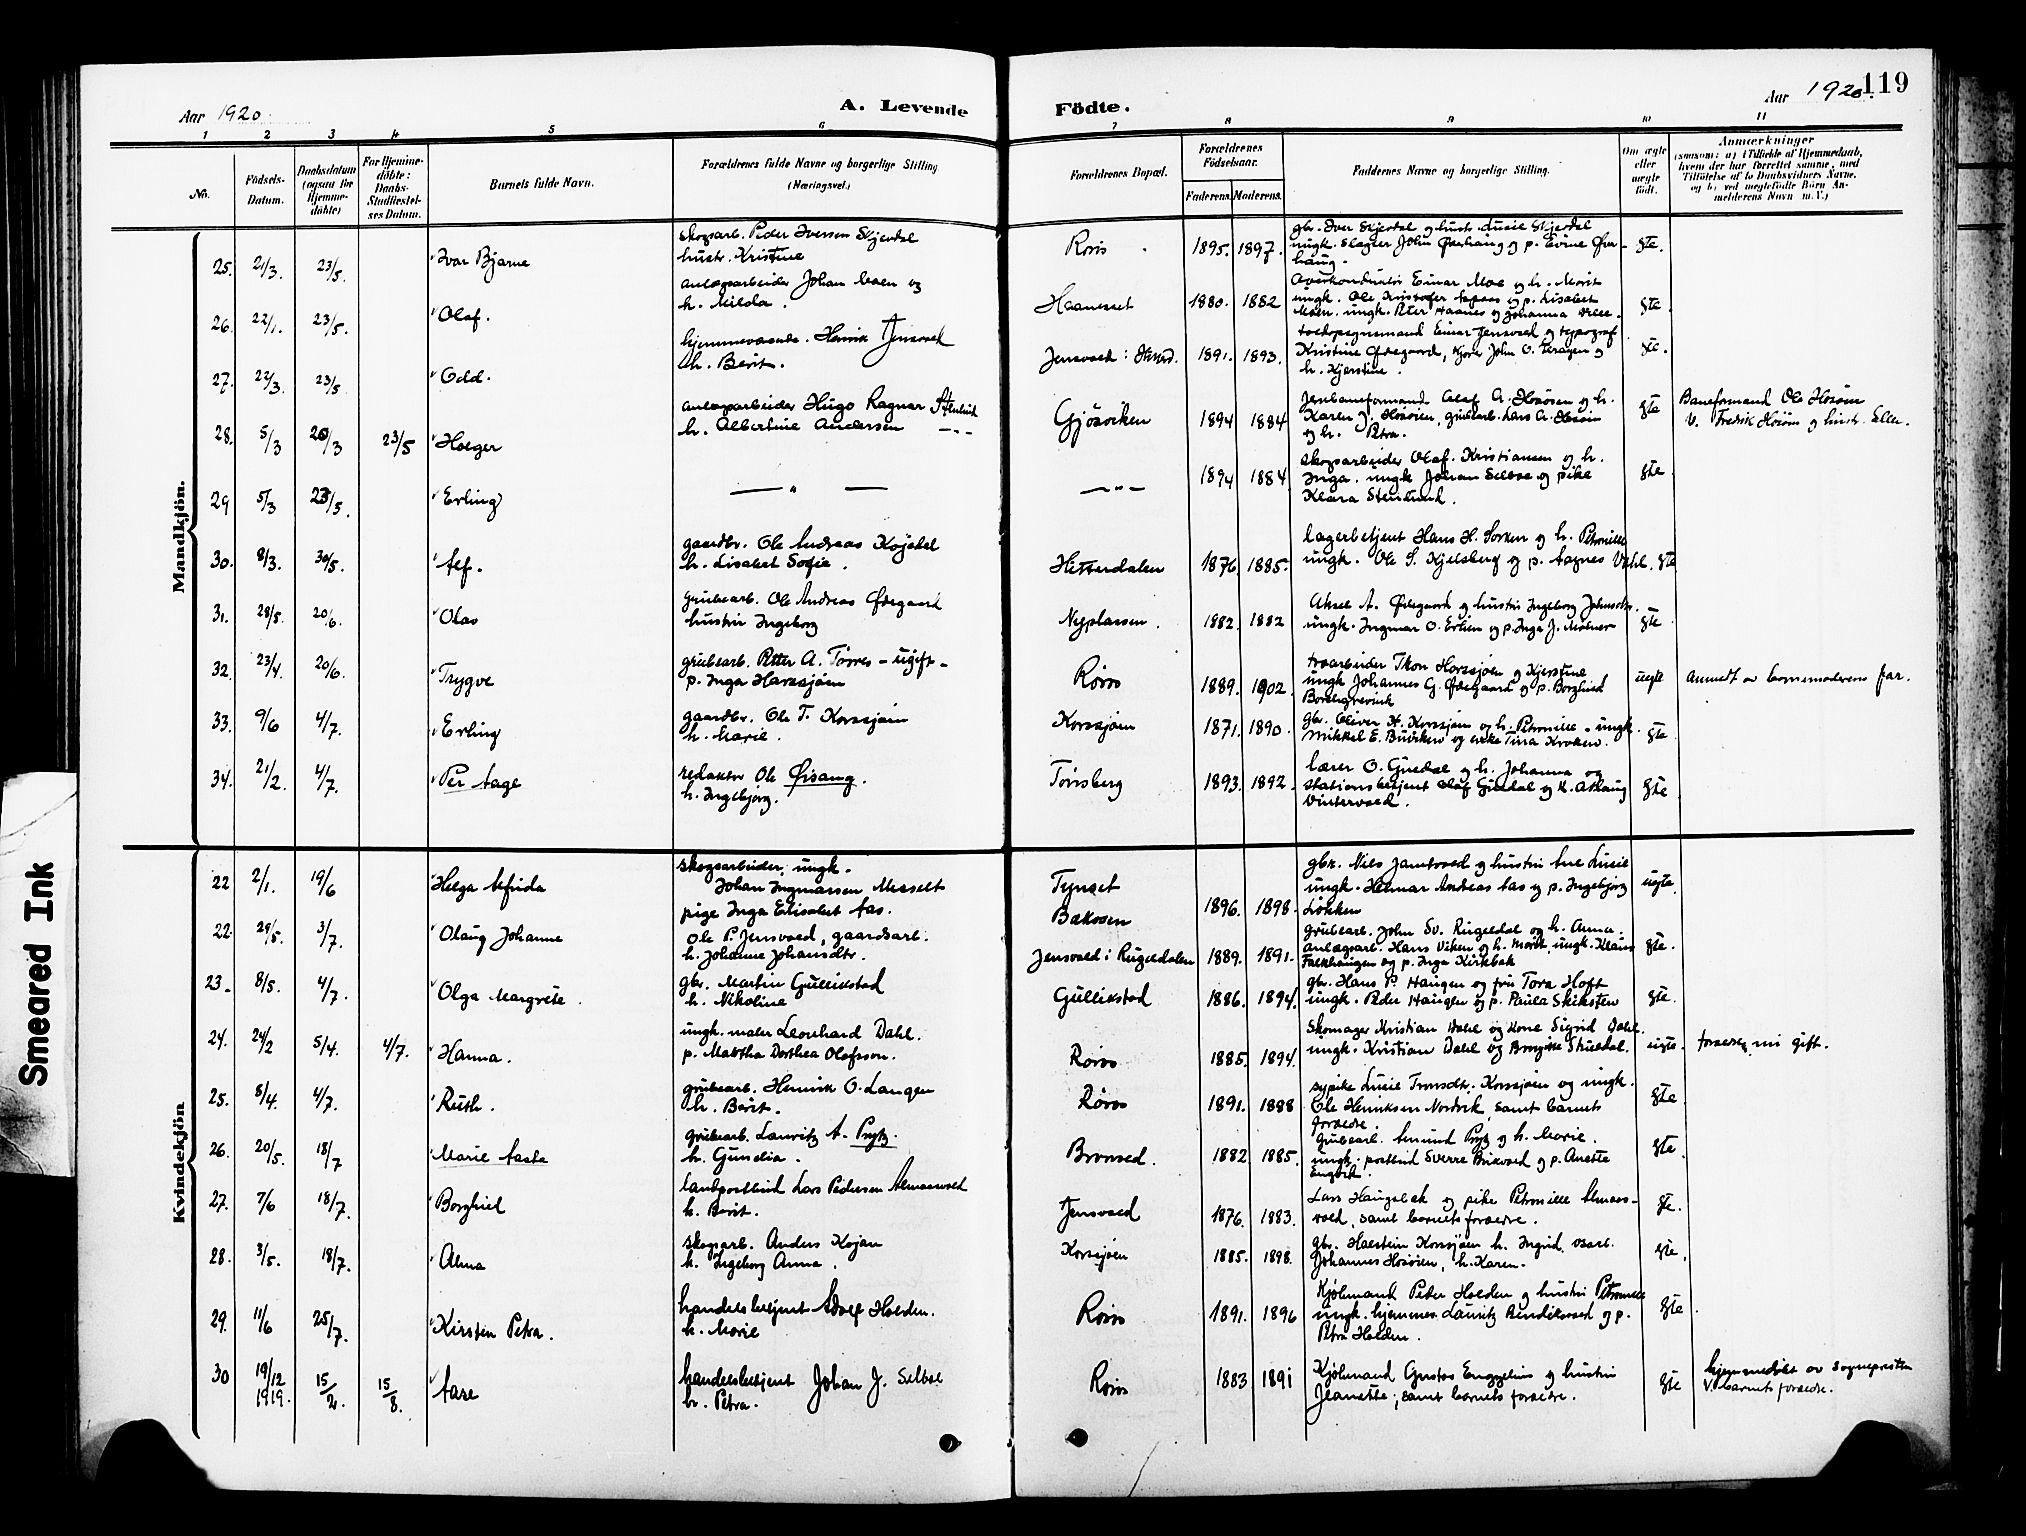 Aar 1920
A. Levende
Födte.
Aar 1920.
119
1 2 3 4 5 6 7 8 9 10 11
No.
Födsels-Datum.
Daabsdatum (ogsaa for Hjemme-döbte)
For Hjemme-döbte: Daabs-Stadfæstel-ses Datum.
Barnets fulde Navn.
Forældrenes fulde Navne og borgerlige Stilling (Næringsvei.)
Forældrenes Bopæl.
Forældrenes Födselsaar.
Faderens. Moderens.
Faddernes Navne og borgerlige Stilling.
Om ægte eller uægte födt.
Anmærkninger
(saasom: a) i Tilfælde af Hjemmedaab,
hvem der har forrettet samme, med
Tilföielse af to Daabsvidners Navne,
og b) ved uægtefödte Börn An-
melderens Navn m. V.)
Mandkjön.
25. 21/3. 23/5. Ivar Bjarne
skogsarb. Peder Iversen Skjevdal
hustr. Kristine
Röros 1895. 1897.
gbr. Iver Skjevdal og hustr. Lusie Skjevdal
ungk. Slagter John Överhaug og p. Evine Över-
haug.
gte.
26. 22/1. 23/5. Olaf.
anlægsarbeider Johan Moen og
h. Milda.
Haanesset 1880. 1882
Overkonduktör Einar Moe og h. Marit
ungk. Ole Kristofer og p. Lisabet
Moen. ungk. Peter Haanes og Johanna
gte
27. 22/3. 23/5 Odd.
hjemmeværende. Henrik Jensvold
h. Berit.
Jensvold: 1891. 1893.
Einar Jensvold og typograf
Kristine Ödegaard, John O. og
h. Kjerstine.
gte.
28. 5/3 20/3 23/5 Holger
anlægsarbeider Hugo Ragnar Stenlund
h. Albertine Andersen -"-
Gjösviken 1894 1884
Jernbaneformand Olaf A. Hosöien og h.
Karen J. Hosöien, grubearb. Lars A. Hosöien
og h. Petra.
gte
Baneformand Ole Hosöien
v. Fredrik Hosöien og hustr. Ellen.
29 5/3 23/5. Erling
— " —
— " — 1894 1884
skogsarbeider Olaf Kristiansen og h.
Inga. ungk Johan Selboe og pike
Klara Stenlund.
gte
30. 8/3. 30/5. Alf.
gaardbr. Ole Andreas Kojedal
h. Lisabet Sofie.
Hitterdalen 1876. 1885.
lagerbetjent Hans H. Sorken og h. Petronille
ungk. Ole S. Kjelsberg og p. Agnes Vahl. gte
31. 28/5. 20/6. Olav
grubearb. Ole Andreas Ödegaard
hustru Ingeborg
Nyplassen. 1882. 1882
Aksel A. Ödegaard og hustru Ingeborg Johnsdtr.
ungk. Ingmar O. Erlien og p. Inga J.
gte
32. 23/4. 20/6. Trygve
grubearb. Petter A. Torres - ugift -
p. Inga Harsjöen
Röros 1889. 1902.
Tron Harsjöen og Kjerstine
ungk Johannes G. Ödegaard og p. Borghild
Borchgrevink
uegte
anmeldt av barnemoderens far.
33. 9/6 4/7. Erling
gaardbr. Ole T. Korssjöen
h. Marie.
Korssjöen 1871. 1890.
gbr. Oliver H. Korssjöen og h. Petronille. ungk.
Mikkel E. Buviken og enke Tina Kroken.
gte.
34. 21/2. 4/7. Per Aage
redaktör Ole Öisang.
h. Ingebjörg.
Tönsberg 1893. 1892.
lærer O. Guldal og h. Johanna og
stationsbetjent Olaf Guldal og h. Aslaug
Vintervold.
gte
Kvindekjön
22 2/1. 19/6 Helga Alfrida
skogsarbeider, ungk.
Johan Ingmarsen Messelt
pige Inga Elisabet Aas.
Tynset
Bakosen 1896. 1898.
gbr. Nils Jamtvold og hustru Ane Lusie
ungk. Helmar Andreas Aas og p. Ingebjörg
Lökken
uegte.
22. 29/5. 3/7. Olaug Johanne
Ole P. Jensvold, gaardsarb.
h. Johanne Johansdtr.
Jensvold i Rugeldalen 1889. 1891.
grubearb. John Sv. Rugeldal og h. Anna.
anlægsarb. Hans Viken og h. Marit, ungk. Klaus
Falkhaugen og p. Inga Kirkbak
gte.
23. 8/5. 4/7. Olga Margrete.
gbr. Martin Gullikstad
h. Nikoline
Gullikstad 1886. 1894.
gbr. Hans P. Haugen og fru Tora Hoft
ungk. Peder Haugen og p. Paula Skiksten
gte.
24. 24/2 5/4. 4/7. Hanna.
ungk. maler Leonhard Dahl.
p. Martha Dorthea Olafsson.
Röros 1885. 1894.
Skomager Kristian Dahl og Kone Sigrid Dahl.
ungk. Kristian Dahl og Birgitte Skuldal.
uegte.
foreldre nu gift.
25. 5/4. 4/7. Ruth.
grubearb. Henrik O. Langen
h. Berit.
Röros 1891. 1888
sypike Lusie Tronsdtr. Korssjöen og ungk.
Ole Henriksen Nordvik, samt barnets
foreldre.
gte.
26. 20/5. 18/7 Marie Aasta
grubearb. Lauritz A. Prytz.
h. Gunelia.
Bronsed. 1882 1885.
grubearb. Amund Prytz og h. Marie.
ungk. postbud Sverre Bukvold og p. Anette
Engvik.
gte.
27. 7/6 18/7. Borghild
landpostbud Lars Pedersen Almaasvold
h. Berit.
Jensvold 1876. 1883.
Lars Haugebak og pike Petronille Almaas-
vold, samt barnets foreldre.
gte.
28. 3/5. 18/7. Alma
skogsarb. Anders Kojan
h. Ingeborg Anna.
Korssjöen 1885. 1898.
gbr. Halstein Korssjöen h. Ingrid,
Johannes Hosöien, h. Karen.
gte.
29. 11/6 25/7. Kirsten Petra.
handelsbetjent Adolf Holden.
h. Marie
Röros 1891. 1896
Kjöbmand Peter Holden og hustru Petronille
ungk. hjemmev. Lauritz Bendiksvold og p.
Petra Holden.
gte.
30 19/12 1919. 15/2. 15/8. Aase
handelsbetjent Johan J. Selboe
h. Petra.
Röros 1883 1891
Kjöbmand Gustav Engzelius og hustru
Jeanette, samt barnets foreldre.
gte
hjemmedöbt av sognepresten
v. barnets foreldre.
Smeared Ink